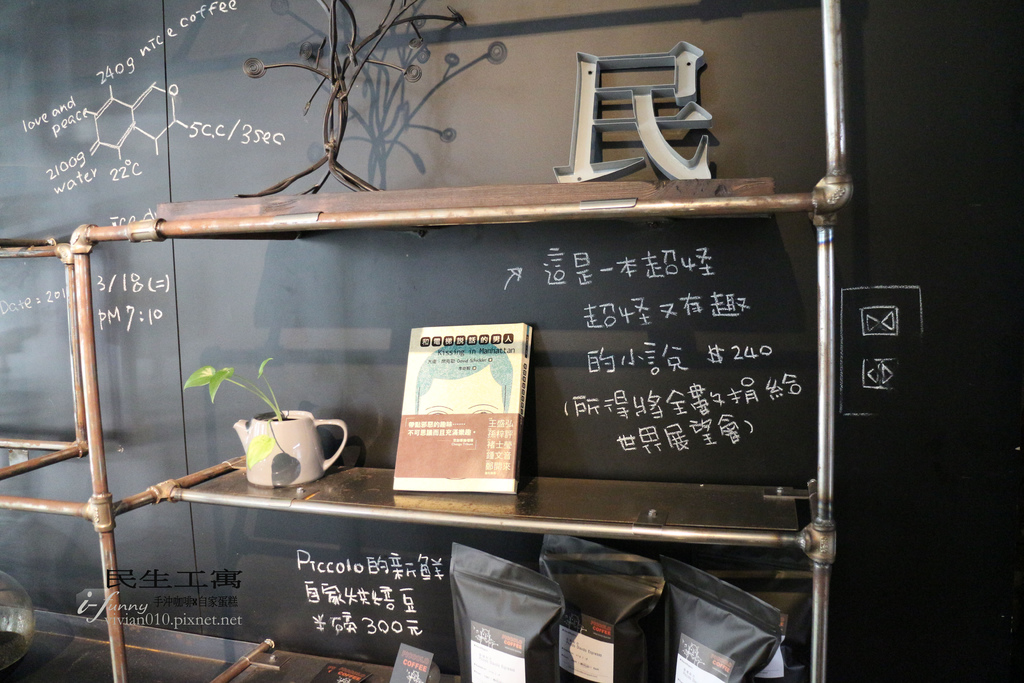 240g nice coffee
love and
peace
O
5c.c/3sec
2100g
water 22°C
民
3/18(二)
PM 7:10
Date=201
這是一本超怪
超怪又有趣
的小說 $240
(所得將全數捐給
世界展望會)
和電梯說話的男人
Kissing in Manhattan
不可思議而且充滿樂趣。
Piccolo的新鮮
自家烘焙豆
半磅300元
COFFEE
COFFEE
COFFEE
民生工寓
手沖咖啡x自家蛋糕
i-funny
vivian010.pixnet.net